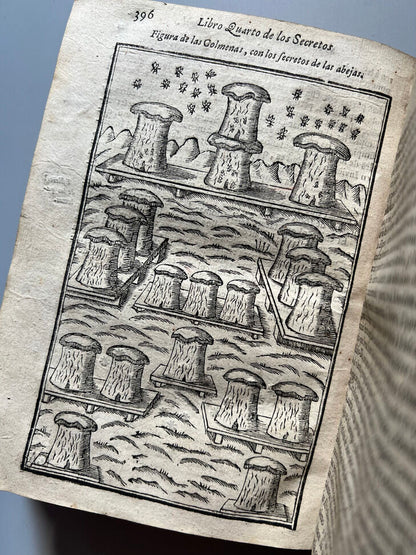 396
Libro Quarto de los Secretos
Figura de las Colmenas, con los secretos de las abejas.